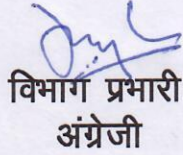 विभाग प्रभारी
अंग्रेजी